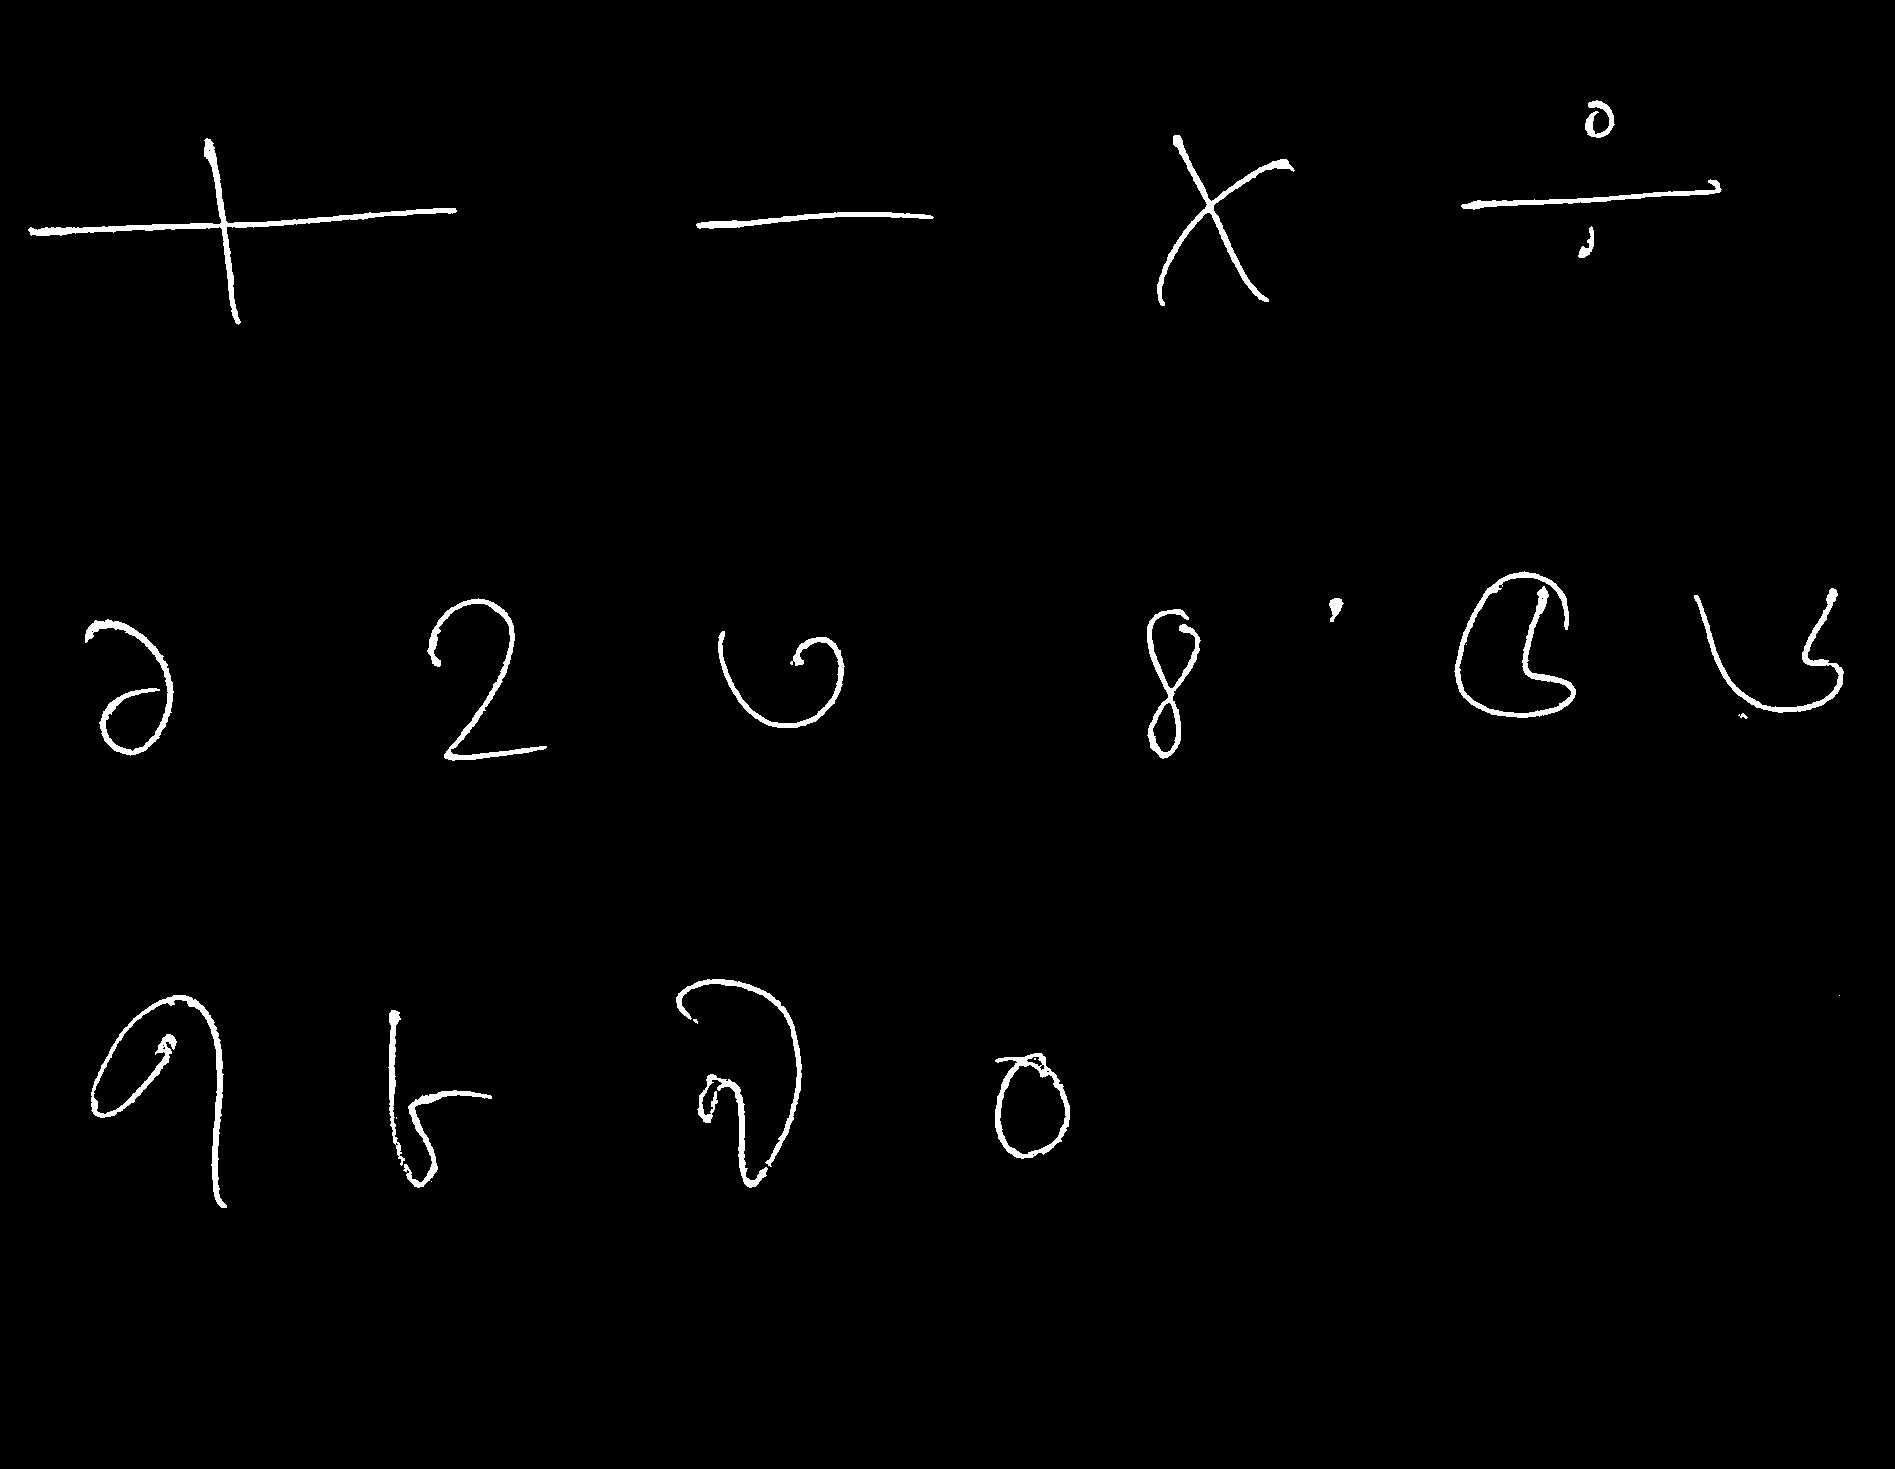 + - × ÷
১ ২ ৩ ৪ ৫ ৬
৭ ৮ ৯ ০